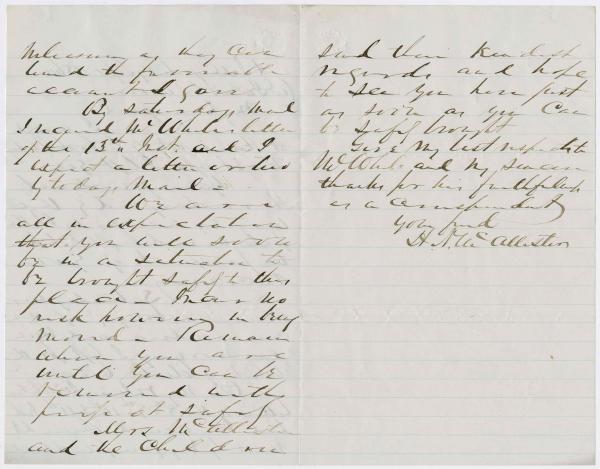 pleasure as they ever
heard the favorable
account I gave
By Saturdays mail
I received Mr White's letter
of the 13th Inst. and I
expect a letter or two
by to day's Mail -
We are
all in expectation
that you will soon
be in a situation to
be brought safely to this
place - Incur no
risk however in being
Moved - Remain
where you are
until you can be
removed with
perfect safety
Mrs McAllister
and the Children
send their kindest
regards and hope
to see you here just
as soon as you can
be safely brought
Give my best respects to
Mr White and my sincere
thanks for his faithfulness
as a correspondent
Your friend
H. N. McAllister